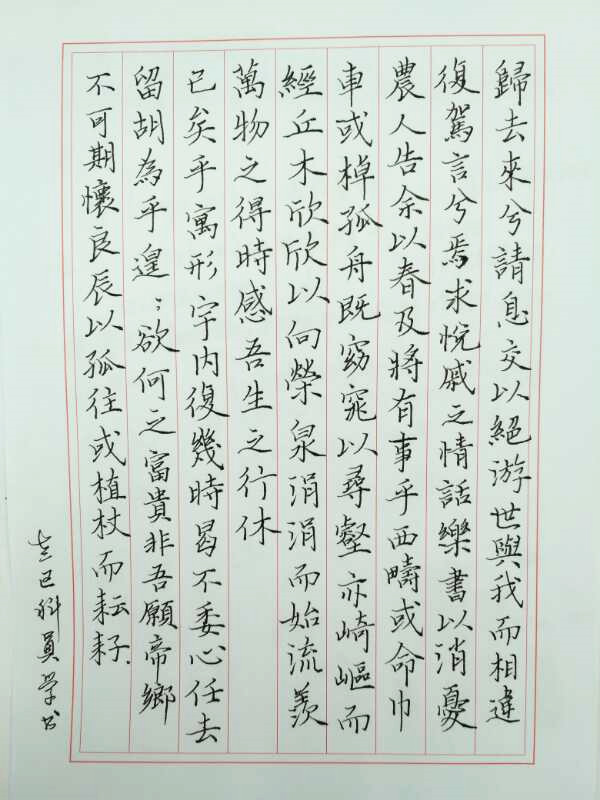 歸去來兮請息交以絕游世與我而相違
復駕言兮焉求悅戚之情話樂書以消憂
農人告余以春及將有事乎西疇或命巾
車或棹孤舟既窈窕以尋壑亦崎嶇而
經丘木欣欣以向榮泉涓涓而始流羨
萬物之得時感吾生之行休
已矣乎寓形宇內復幾時曷不委心任去
留胡為乎遑〻欲何之富貴非吾願帝鄉
不可期懷良辰以孤往或植杖而耘耔
科員學書